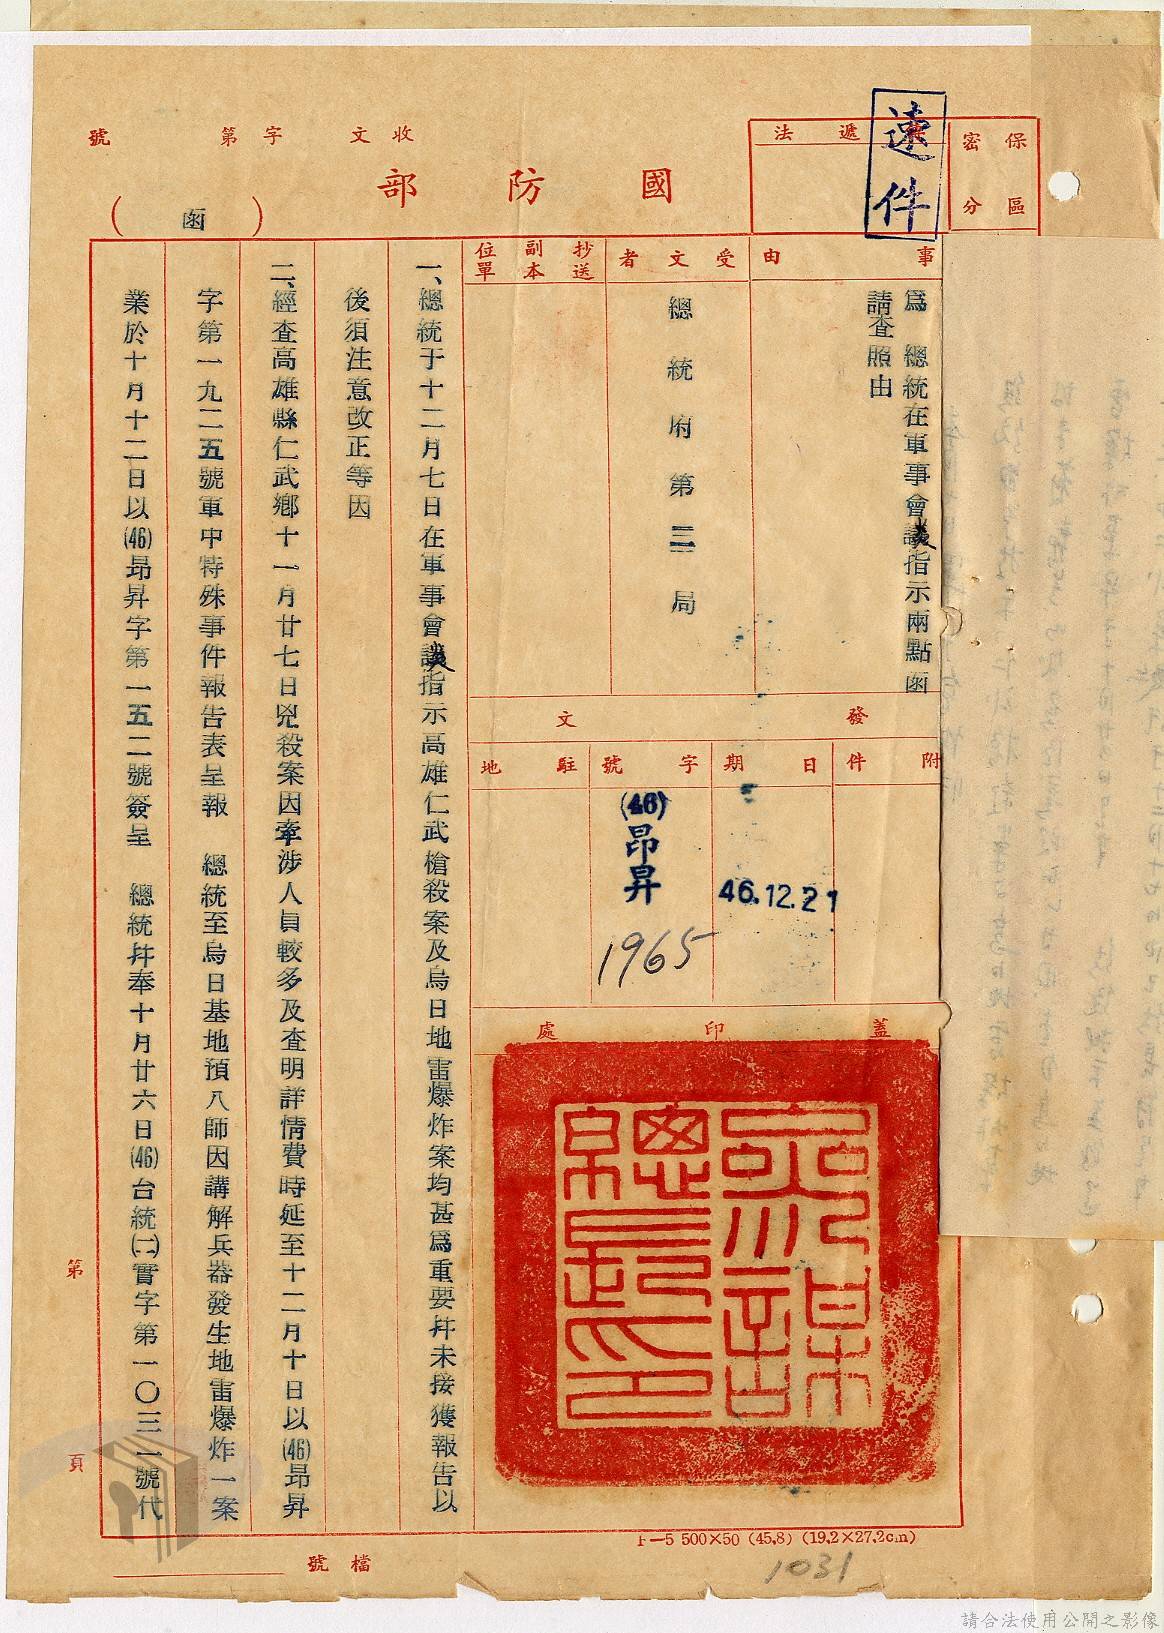 收文 字第 號
國防部
(函)
保密區分
遞法
速件
事由
為 總統在軍事會議指示兩點函
請查照由
受文者
總統府第二局
抄送副本單位
發文
附件
日期
46.12.21
字號
(46)昂昇
1965
駐地
蓋印處
參謀總長印
一、總統于十二月七日在軍事會議指示高雄仁武槍殺案及烏日地雷爆炸案均甚為重要幷未接獲報告以
後須注意改正等因
二、經查高雄縣仁武鄉十一月廿七日兇殺案因牽涉人員較多及查明詳情費時延至十二月十日以(46)昂昇
字第一九二五號軍中特殊事件報告表呈報 總統至烏日基地預八師因講解兵器發生地雷爆炸一案
業於十月十二日以(46)昂昇字第一五二號簽呈 總統幷奉十月廿六日(46)台統(二)實字第一〇三一號代
第 頁
檔號
F—5 500×50 (45,8) (19,2×27,2cm)
1031
請合法使用公開之影像